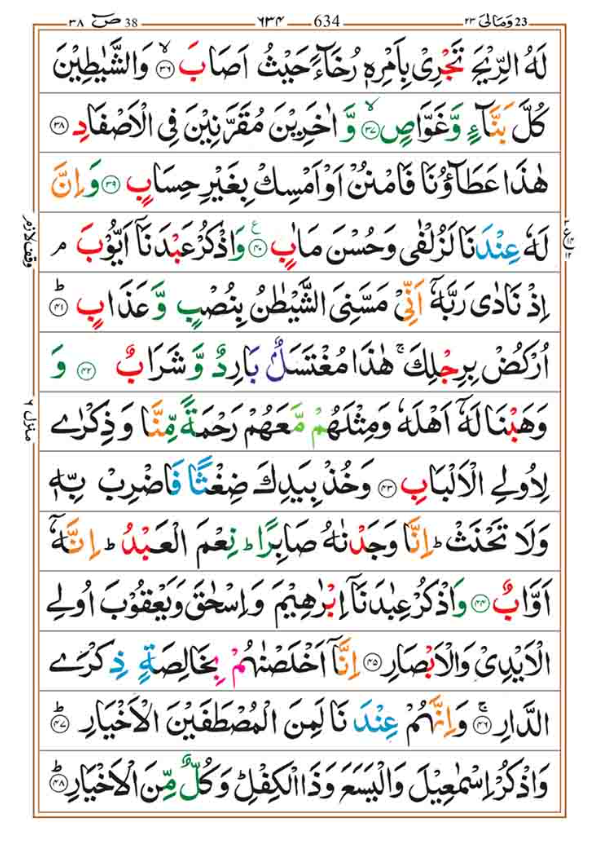 ٣٨ صٓ 38 ٦٣٤ 634 وَمَالِیَ ٢٣ 23
لَهُ الرِّيْحَ تَجْرِىْ بِاَمْرِهٖ رُخَآءً حَيْثُ اَصَابَ ۙ‏﴿۳۶﴾ وَالشَّيٰطِيْنَ
كُلَّ بَنَّآءٍ وَّغَوَّاصٍ ۙ‏﴿۳۷﴾ وَّاٰخَرِيْنَ مُقَرَّنِيْنَ فِى الْاَصْفَادِ‏ ﴿۳۸﴾
هٰذَا عَطَآؤُنَا فَامْنُنْ اَوْ اَمْسِكْ بِغَيْرِ حِسَابٍ‏ ﴿۳۹﴾ وَاِنَّ
لَهٗ عِنْدَنَا لَزُلْفٰى وَحُسْنَ مَاٰبٍ ‏﴿۴۰﴾ ع وَاذْكُرْ عَبْدَنَاۤ اَيُّوْبَ ۘ
اِذْ نَادٰى رَبَّهٗۤ اَنِّىْ مَسَّنِىَ الشَّيْطٰنُ بِنُصْبٍ وَّعَذَابٍ ؕ‏﴿۴۱﴾
اُرْكُضْ بِرِجْلِكَ ۚ هٰذَا مُغْتَسَلٌۢ بَارِدٌ وَّشَرَابٌ‏ ﴿۴۲﴾ وَ
وَهَبْنَا لَهٗۤ اَهْلَهٗ وَمِثْلَهُمْ مَّعَهُمْ رَحْمَةً مِّنَّا وَذِكْرٰى
لِاُولِى الْاَلْبَابِ‏ ﴿۴۳﴾ وَخُذْ بِيَدِكَ ضِغْثًا فَاضْرِبْ بِّهٖ
وَلَا تَحْنَثْ ؕ اِنَّا وَجَدْنٰهُ صَابِرًا ؕ نِعْمَ الْعَبْدُ ؕ اِنَّهٗۤ
اَوَّابٌ‏ ﴿۴۴﴾ وَاذْكُرْ عِبٰدَنَاۤ اِبْرٰهِيْمَ وَاِسْحٰقَ وَيَعْقُوْبَ اُولِى
الْاَيْدِىْ وَالْاَبْصَارِ‏ ﴿۴۵﴾ اِنَّاۤ اَخْلَصْنٰهُمْ بِخَالِصَةٍ ذِكْرَى
الدَّارِ ۚ‏﴿۴۶﴾ وَاِنَّهُمْ عِنْدَنَا لَمِنَ الْمُصْطَفَيْنَ الْاَخْيَارِ ؕ‏﴿۴۷﴾
وَاذْكُرْ اِسْمٰعِيْلَ وَالْيَسَعَ وَذَا الْكِفْلِ ؕ وَكُلٌّ مِّنَ الْاَخْيَارِ ؕ‏﴿۴۸﴾
وقف لازم
منزل ٦